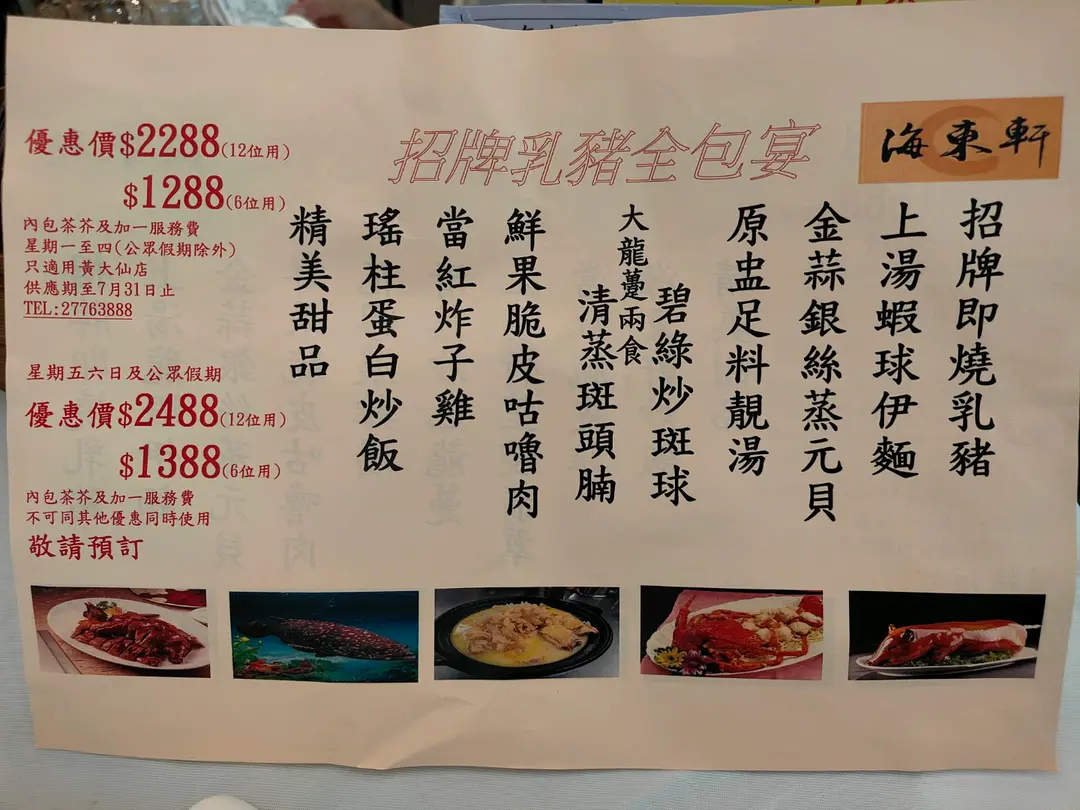 海東軒
招牌乳豬全包宴
招牌即燒乳豬
上湯蝦球伊麵
金蒜銀絲蒸元貝
原盅足料靚湯
大龍躉兩食
碧綠炒斑球
清蒸斑頭腩
鮮果脆皮咕嚕肉
當紅炸子雞
瑤柱蛋白炒飯
精美甜品
優惠價$2288(12位用)
$1288(6位用)
內包茶芥及加一服務費
星期一至四(公眾假期除外)
只適用黃大仙店
供應期至7月31日止
TEL:27763888
星期五六日及公眾假期
優惠價$2488(12位用)
$1388(6位用)
內包茶芥及加一服務費
不可同其他優惠同時使用
敬請預訂